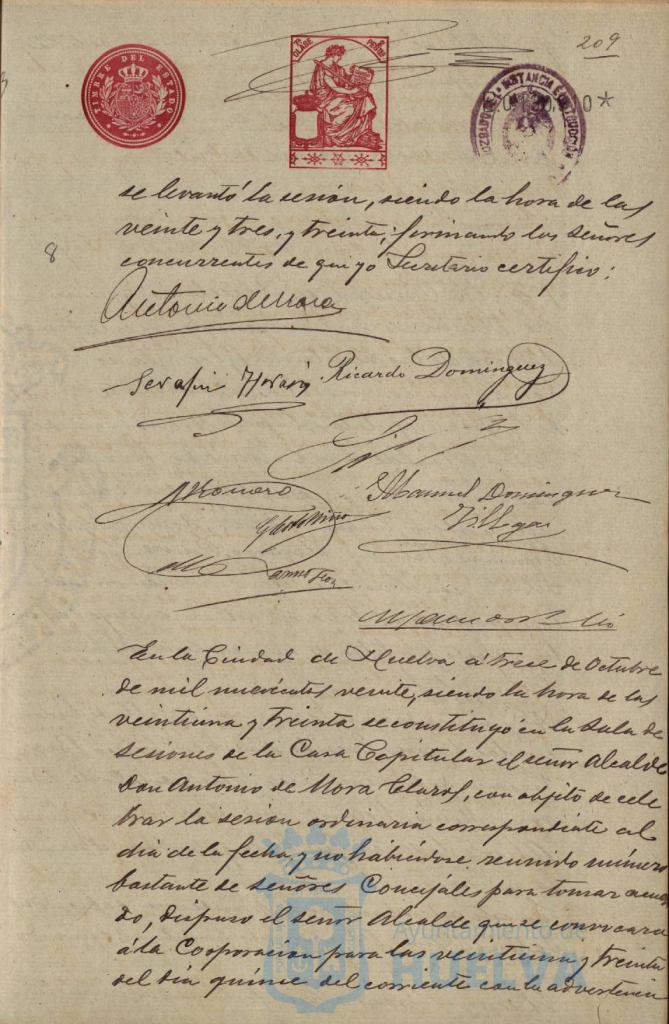 209
TIMBRE DEL ESTADO
7ª CLASE
PESETA
JUZGADO DE 1ª INSTANCIA E INSTRUCCIÓN
8
se levantó la sesión, siendo la hora de las
veinte y tres, y treinta, firmando los señores
concurrentes de que yo Secretario certifico:
Antonio de Mora
Serafin Ricardo Dominguez
A Romero
Manuel Dominguez
Villegas
En la Ciudad de Huelva á trece de Octubre
de mil nuevecientos veinte, siendo la hora de las
veintiuna y treinta se constituyó en la Sala de
sesiones de la Casa Capitular el señor Alcalde
Don Antonio de Mora Claros, con objeto de cele
brar la sesión ordinaria correspondiente al
dia de la fecha, y no habiéndose reunido número
bastante de señores Concejáles para tomar acuer
do, dispuso el señor Alcalde que se convocara
á la Corporación para las veintiuna y treinta
del dia quince del corriente con la advertencia
Ayuntamiento de
HUELVA